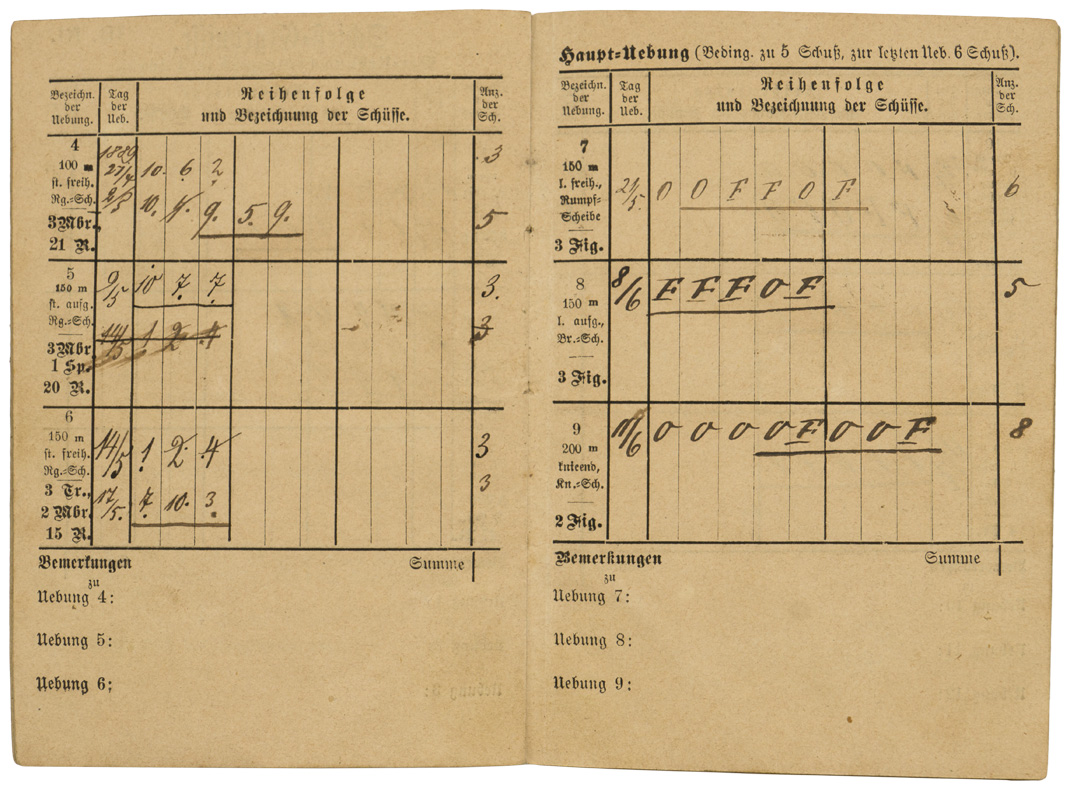 Bezeichn. der Uebung. Tag der Ueb. Reihenfolge und Bezeichnung der Schüsse. Anz. der Sch.
4
100 m
st. freih.
Rg.=Sch.
3 Mbr.,
21 R.
1889
27/4 10. 6 2 3
2/5 10. 9. 5. 9. 5
5
150 m
st. aufg.
Rg.=Sch.
3 Mbr
1 Sp.
20 R.
9/5 10 7 7 3.
14/5 1 2 4 3
6
150 m
st. freih.
Rg.=Sch.
3 Tr.,
2 Mbr.
15 R.
14/5 1 2 4 3
17/5. 7 10. 3 3
Bemerkungen Summe
zu
Uebung 4:
Uebung 5:
Uebung 6:
Haupt=Uebung (Beding. zu 5 Schuß, zur letzten Ueb. 6 Schuß).
Bezeichn. der Uebung. Tag der Ueb. Reihenfolge und Bezeichnung der Schüsse. Anz. der Sch.
7
150 m
l. freih.,
Rumpf=
Scheibe
3 Fig.
21/5. O O F F O F 6
8
150 m
l. aufg.,
Br.=Sch.
3 Fig.
8/6 F F F O F 5
9
200 m
knieend,
Kn.=Sch.
2 Fig.
O O O O F O O F 8
Bemerkungen Summe
zu
Uebung 7:
Uebung 8:
Uebung 9: